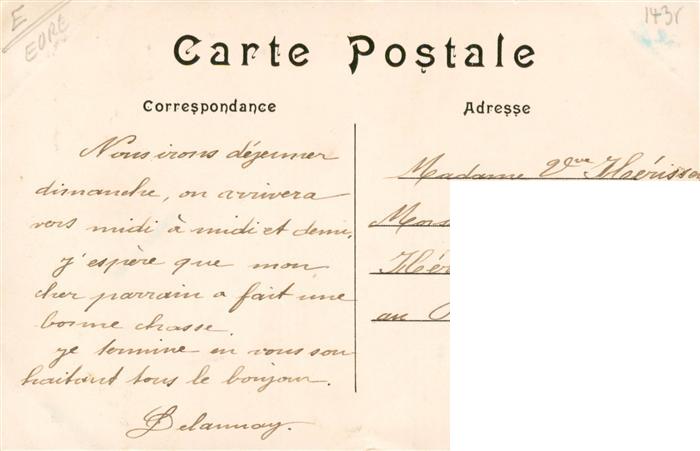 E
EURE
143r
Carte Postale
Correspondance
Nous irons déjeuner
dimanche, on arrivera
vers midi à midi et demi,
j'espère que mon
cher parrain a fait une
bonne chasse.
je termine en vous sou
haitant tous le bonjour.
Delaunay.
Adresse
Madame Vve Hérisson
au